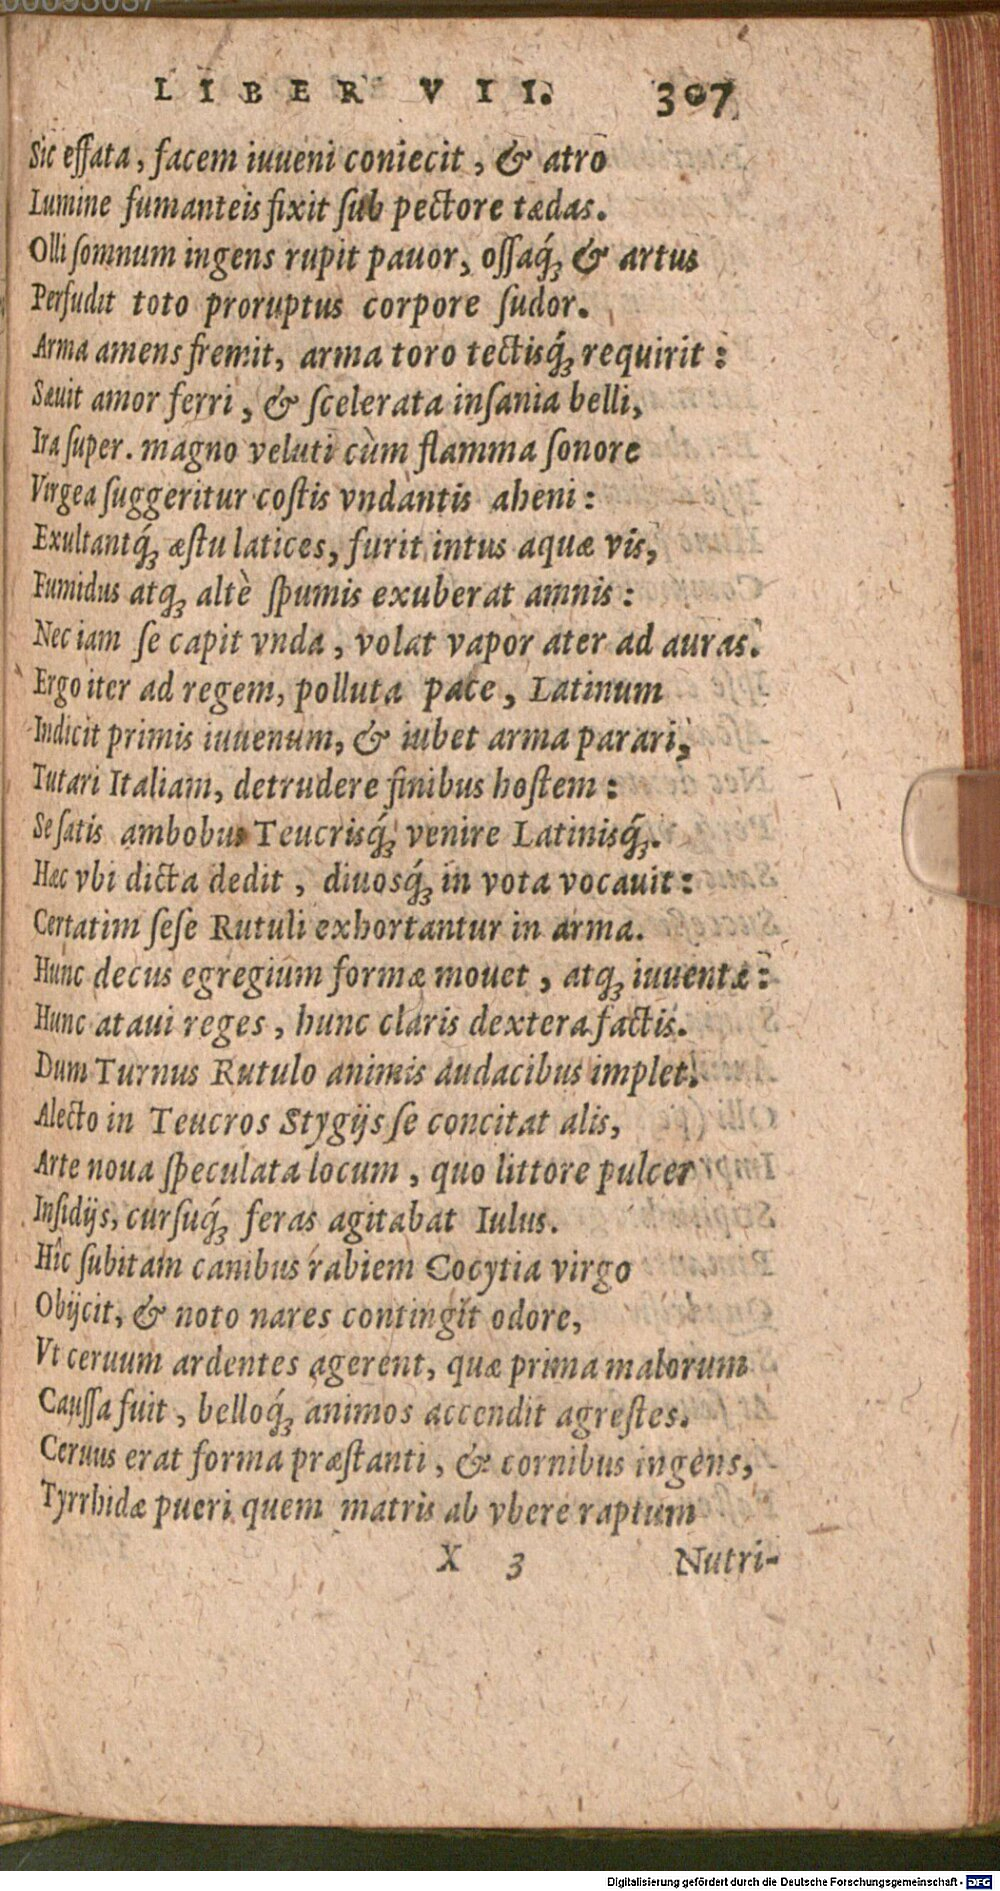 LIBER VII. 307
Sic effata, facem iuueni coniecit, & atro
Lumine fumanteis fixit sub pectore tædas.
Olli somnum ingens rupit pauor, ossaq́; & artus
Perfudit toto proruptus corpore sudor.
Arma amens fremit, arma toro tectisq́; requirit:
Sæuit amor ferri, & scelerata insania belli,
Ira super. magno veluti cùm flamma sonore
Virgea suggeritur costis vndantis aheni:
Exultantq́; æstu latices, furit intus aquæ vis,
Fumidus atq; altè spumis exuberat amnis:
Nec iam se capit vnda, volat vapor ater ad auras.
Ergo iter ad regem, polluta pace, Latinum
Indicit primis iuuenum, & iubet arma parari,
Tutari Italiam, detrudere finibus hostem:
Se satis ambobus Teucrisq́; venire Latinisq́;.
Hæc vbi dicta dedit, diuosq́; in vota vocauit:
Certatim sese Rutuli exhortantur in arma.
Hunc decus egregium formæ mouet, atq; iuuentæ:
Hunc ataui reges, hunc claris dextera factis.
Dum Turnus Rutulo animis audacibus implet:
Alecto in Teucros Stygijs se concitat alis,
Arte noua speculata locum, quo littore pulcer
Insidijs, cursuq́; feras agitabat Iulus.
Hîc subitam canibus rabiem Cocytia virgo
Obijcit, & noto nares contingit odore,
Vt ceruum ardentes agerent, quæ prima malorum
Caussa fuit, belloq́; animos accendit agrestes.
Ceruus erat forma præstanti, & cornibus ingens,
Tyrrhidæ pueri quem matris ab vbere raptum
X 3 Nutri-
Digitalisierung gefördert durch die Deutsche Forschungsgemeinschaft - DFG